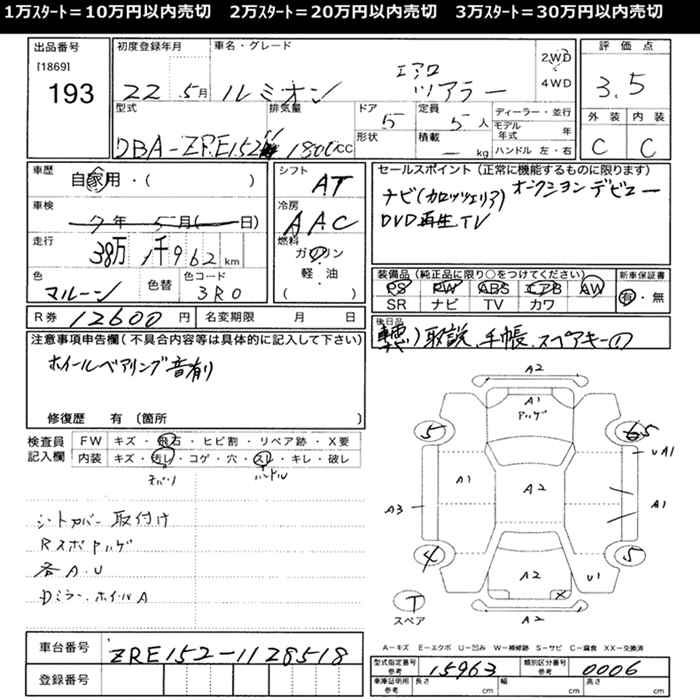 1万ｽﾀｰﾄ＝10万円以内売切　2万ｽﾀｰﾄ＝20万円以内売切　3万ｽﾀｰﾄ＝30万円以内売切
出品番号
[1869]
193
初度登録年月
22 5月
車名・グレード
ルミオン エアロ ツアラー
2WD
4WD
評価点
3.5
外装 内装
C C
型式
DBA-ZRE152
排気量
1800CC
ドア
5
形状
定員
5人
積載
— kg
ディーラー・並行
モデル年式 年
ハンドル 左・右
車歴
自家用・( )
車検
7年 5月( 日)
走行
38万 1千962km
色
マルーン
色替
色コード
3R0
シフト
AT
冷房
AAC
燃料
ガソリン
軽・油
( )
セールスポイント(正常に機能するものに限ります)
ナビ(カロッツェリア) オークションデビュー
DVD再生 TV
装備品(純正品に限り○をつけてください)
PS PW ABS エアB AW
SR ナビ TV カワ
新車保証書
有・無
R券 12600円
名変期限 月 日
後日品
取説、手帳、スペアキー①
注意事項申告欄(不具合内容等は具体的に記入して下さい)
ホイールベアリング音有り
修復歴 有 (箇所 )
検査員記入欄
FW キズ・飛石・ヒビ割・リペア跡・X要
内装 キズ・汚レ・コゲ・穴・スレ・キレ・破レ
ハンドル
シートカバー取付け
Rスポ ハゲ
各A.U
Dミラー、ホイルA
A2
A1
ハゲ
5
6.5
UA1
A1
A2
A3
A1
4
5
A2
U1
A2
T
スペア
A－キズ E－エクボ U－凹み W－補修跡 S－サビ C－腐食 XX－交換済
車台番号
ZRE152-1128518
登録番号
型式指定番号 参考
15963
類別区分番号 参考
0006
車庫証明用 参考
長さ cm 幅 cm 高さ cm